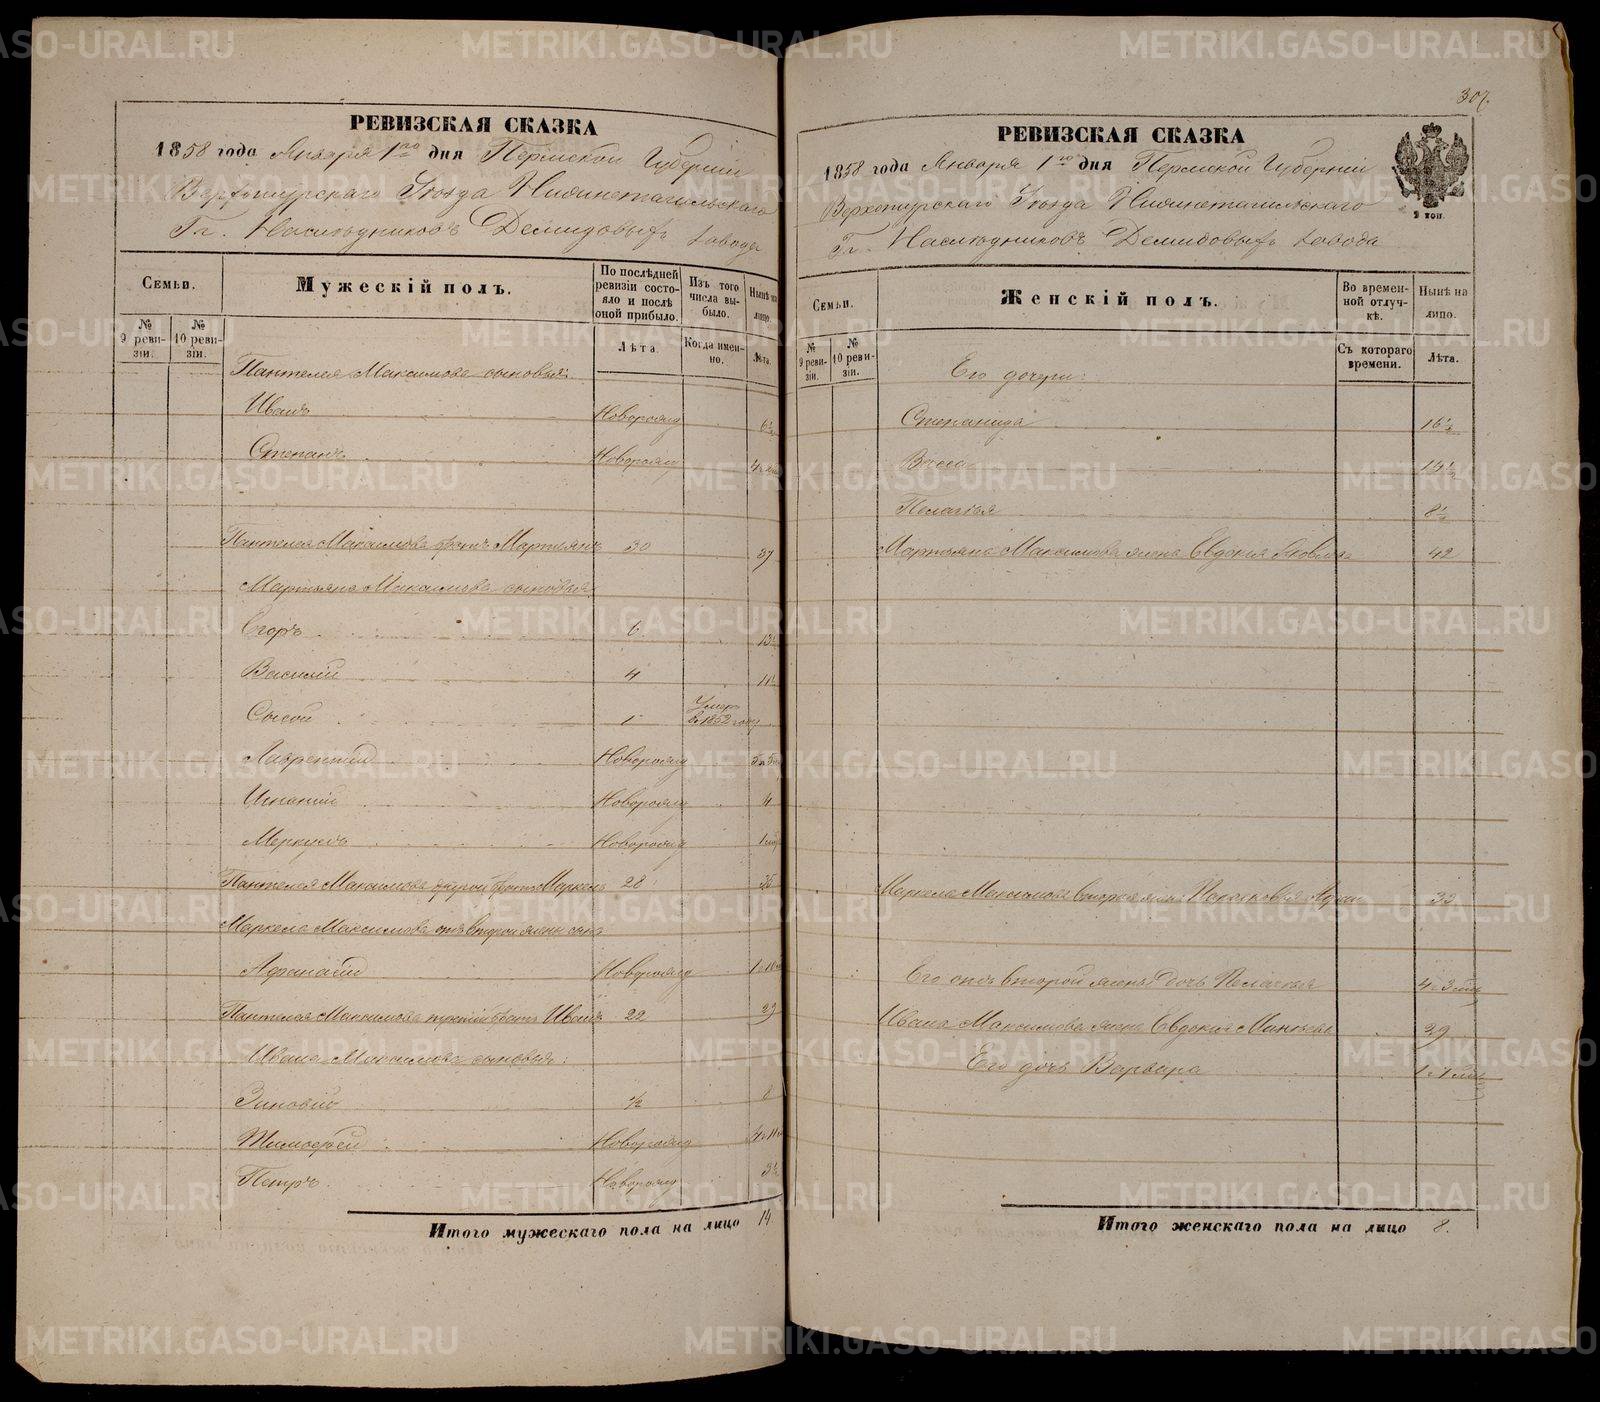 РЕВИЗСКАЯ СКАЗКА
1858 года Января 1го дня Пермской Губерніи
Верхотурскаго Уѣзда Нижнетагильскаго
Гг. Наслѣдниковъ Демидовыхъ завода
Семьи.
№ 9 ревизіи.
№ 10 ревизіи.
Мужескій полъ.
По послѣдней ревизіи состояло и послѣ оной прибыло.
Лѣта.
Изъ того числа выбыло.
Когда именно.
Нынѣ на лицо.
Лѣта.
Пантелея Максимова сыновья:
Иванъ Новорожд 6½
Степанъ Новорожд
Пантелея Максимова братъ Мартьянъ 30 37
Мартьяна Максимова сыновья:
Егоръ 6 13½
Василій 4 11½
Сысой 1 Умеръ въ 1852 году
Лаврентій Новорожд
Игнатій Новорожд 4
Меркурій Новорожд
Пантелея Максимова другой братъ Маркелъ 28 35
Маркела Максимова отъ второй жены сынъ
Афанасій Новорожд
Пантелея Максимова третій братъ Иванъ 22 29
Ивана Максимова сыновья:
Зиновій ½ 8
Тимофей Новорожд
Петръ Новорожд
Итого мужескаго пола на лицо 14.
307.
РЕВИЗСКАЯ СКАЗКА
1858 года Января 1го дня Пермской Губерніи
Верхотурскаго Уѣзда Нижнетагильскаго
Гг. Наслѣдниковъ Демидовыхъ завода
Семьи.
№ 9 ревизіи.
№ 10 ревизіи.
Женскій полъ.
Во временной отлучкѣ.
Съ котораго времени.
Нынѣ на лицо.
Лѣта.
Его дочери:
Степанида 16½
Васса 14½
Пелагѣя 8½
Мартьяна Максимова жена Евдокія Яковлева 42
Маркела Максимова вторая жена Парасковья
Его отъ второй жены дочь Пелагѣя
Ивана Максимова жена Евдокія 29
Его дочь Варвара
Итого женскаго пола на лицо 8.
METRIKI.GASO-URAL.RU